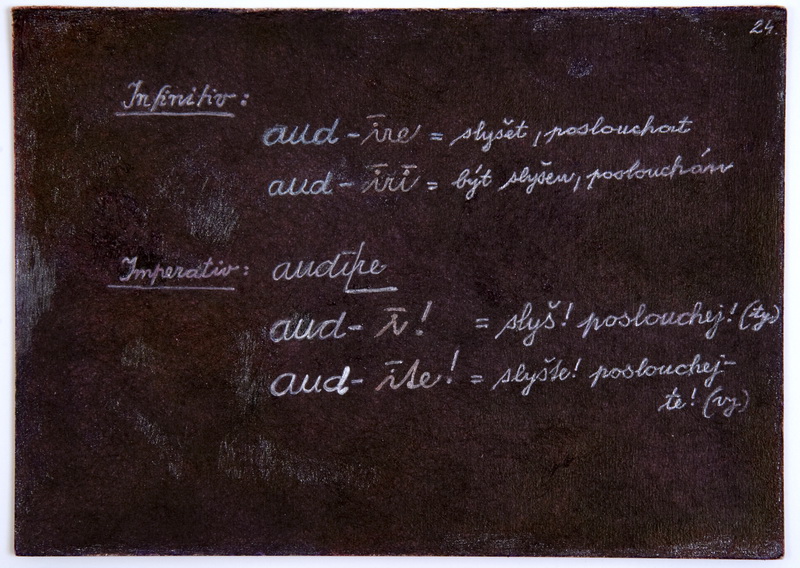 24.
Infinitiv:
aud-īre = slyšet, poslouchat
aud-īrī = být slyšen, poslouchán
Imperativ: audīre
aud-ī! = slyš! poslouchej! (ty)
aud-īte! = slyšte! poslouchej-
te! (vy)